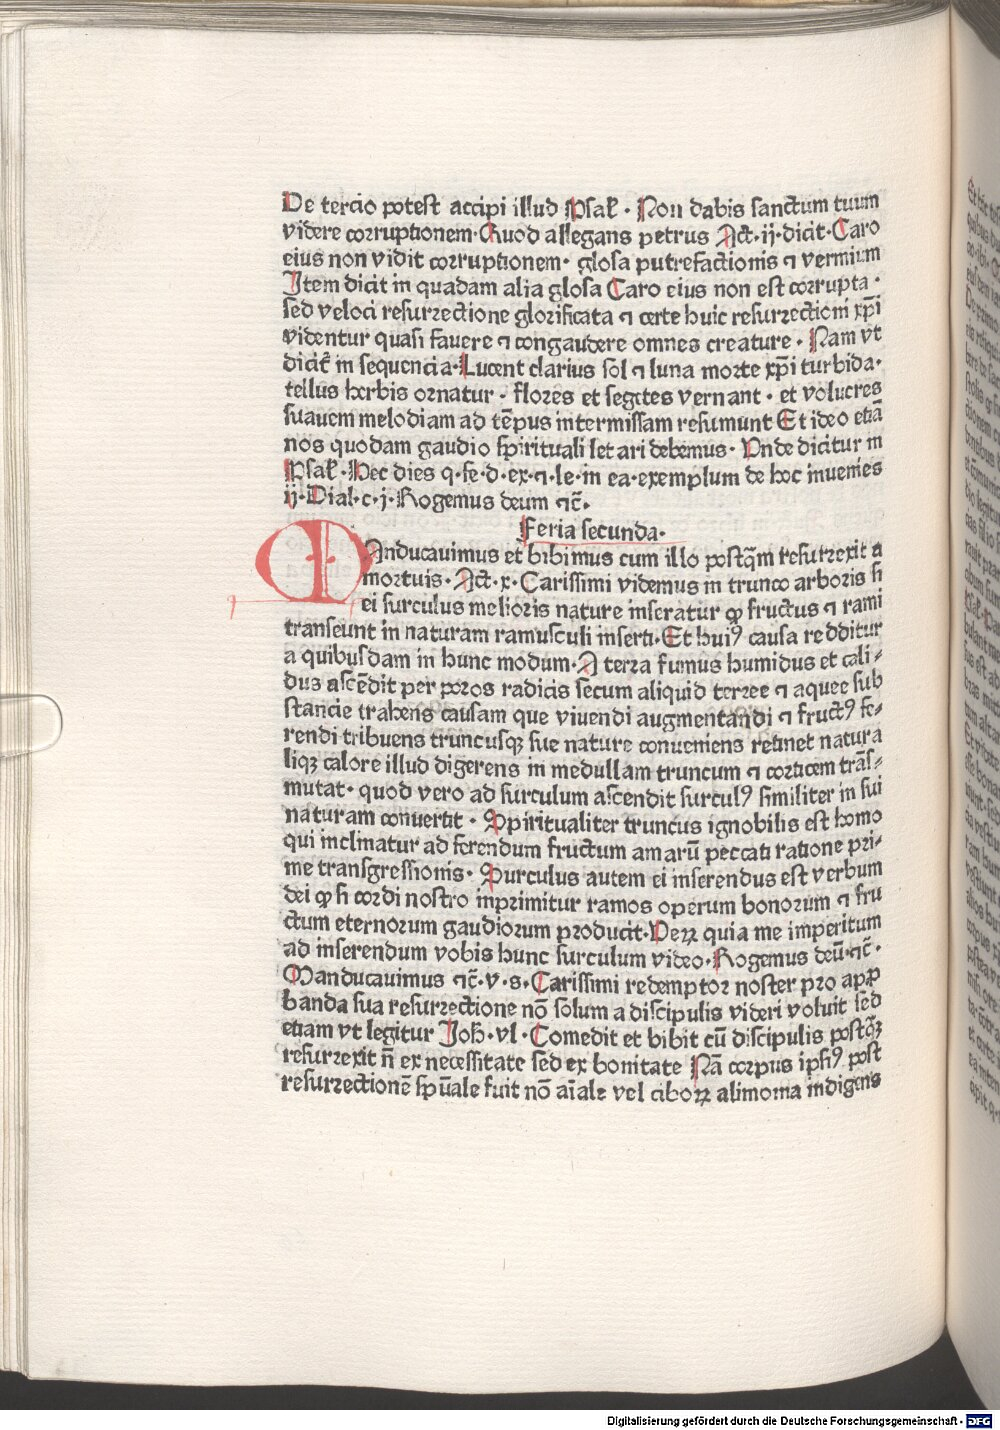 De tercio potest accipi illud Psał · Non dabis sanctum tuum
videre corruptionem · Quod allegans petrus Act · ij · dicit · Caro
eius non vidit corruptionem · glosa putrefactionis ⁊ vermium
Item dicit in quadam alia glosa Caro eius non est corrupta ·
sed veloci resurrectione glorificata ⁊ certe huic resurrectioni xp̄i
videntur quasi fauere ⁊ congaudere omnes creature · Nam vt
dicit̄ in sequencia · Lucent clarius sol ⁊ luna morte xp̄i turbida ·
tellus herbis ornatur · flores et segetes vernant · et volucres
suauem melodiam ad tēpus intermissam resumunt Et ideo etiā
nos quodam gaudio spirituali letari debemus · Vnde dicitur in
Psał · Hec dies q · fe · d · ex · ⁊ · le · in ea · exemplum de hoc inuenies
ij · Dial · c · j · Rogemus deum ⁊c̄ ·
Feria secunda ·
MAnducauimus et bibimus cum illo postq̄m resurrexit a
mortuis · Act · x · Carissimi videmus in trunco arboris si
ei surculus melioris nature inseratur ꝙ fructus ⁊ rami
transeunt in naturam ramusculi inserti · Et huiꝰ causa redditur
a quibusdam in hunc modum · A terra fumus humidus et cali⸗
dus ascēdit per poros radicis secum aliquid terree ⁊ aquee sub
stancie trahens causam que viuendi augmentandi ⁊ fructꝰ fe⸗
rendi tribuens truncusqꝫ sue nature conueniens retinet natura
liqꝫ calore illud digerens in medullam truncum ⁊ corticem trās⸗
mutat · quod vero ad surculum ascendit surculꝰ similiter in sui
naturam conuertit · Spiritualiter truncus ignobilis est homo
qui inclinatur ad ferendum fructum amarū peccati ratione pri⸗
me transgressionis · Surculus autem ei inserendus est verbum
dei ꝙ si cordi nostro inprimitur ramos operum bonorum ⁊ fru
ctum eternorum gaudiorum producit · Veꝝ quia me imperitum
ad inserendum vobis hunc surculum video · Rogemus deū · ⁊c̄ ·
Manducauimus ⁊c̄ · v · s · Carissimi redemptor noster pro app̄
banda sua resurrectione nō solum a discipulis videri voluit sed
etiam vt legitur Joh̄ · vl · Comedit et bibit cū discipulis postq̄ꝫ
resurrexit n̄ ex necessitate sed ex bonitate Nā corpus ipsiꝰ post
resurrectione sp̄uale fuit nō aīale vel ciboꝝ alimonia indigens
Digitalisierung gefördert durch die Deutsche Forschungsgemeinschaft - DFG